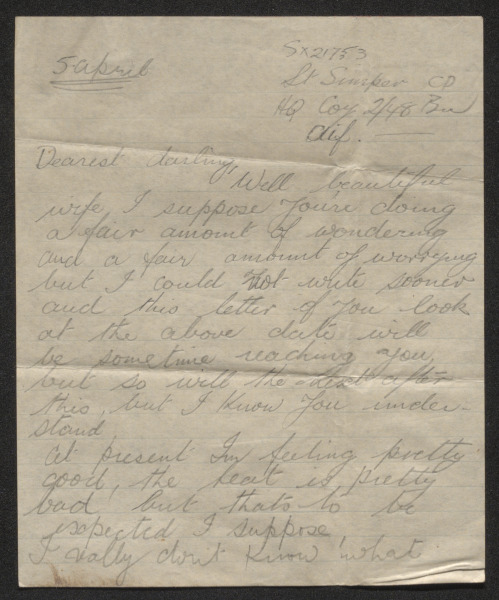 5 April
SX21753
Lt Simper CD
HQ Coy 2/48 Bn
Aif.
Dearest darling,
Well beautiful
wife, I suppose youre doing
a fair amount of wondering
and a fair amount of worrying
but I could not write sooner
and this letter if you look
at the above date will
be sometime reaching you,
but so will the next after
this, but I know you under-
stand,
At present Im feeling pretty
good, the heat is pretty
bad, but thats to be
expected I suppose
I really dont know what